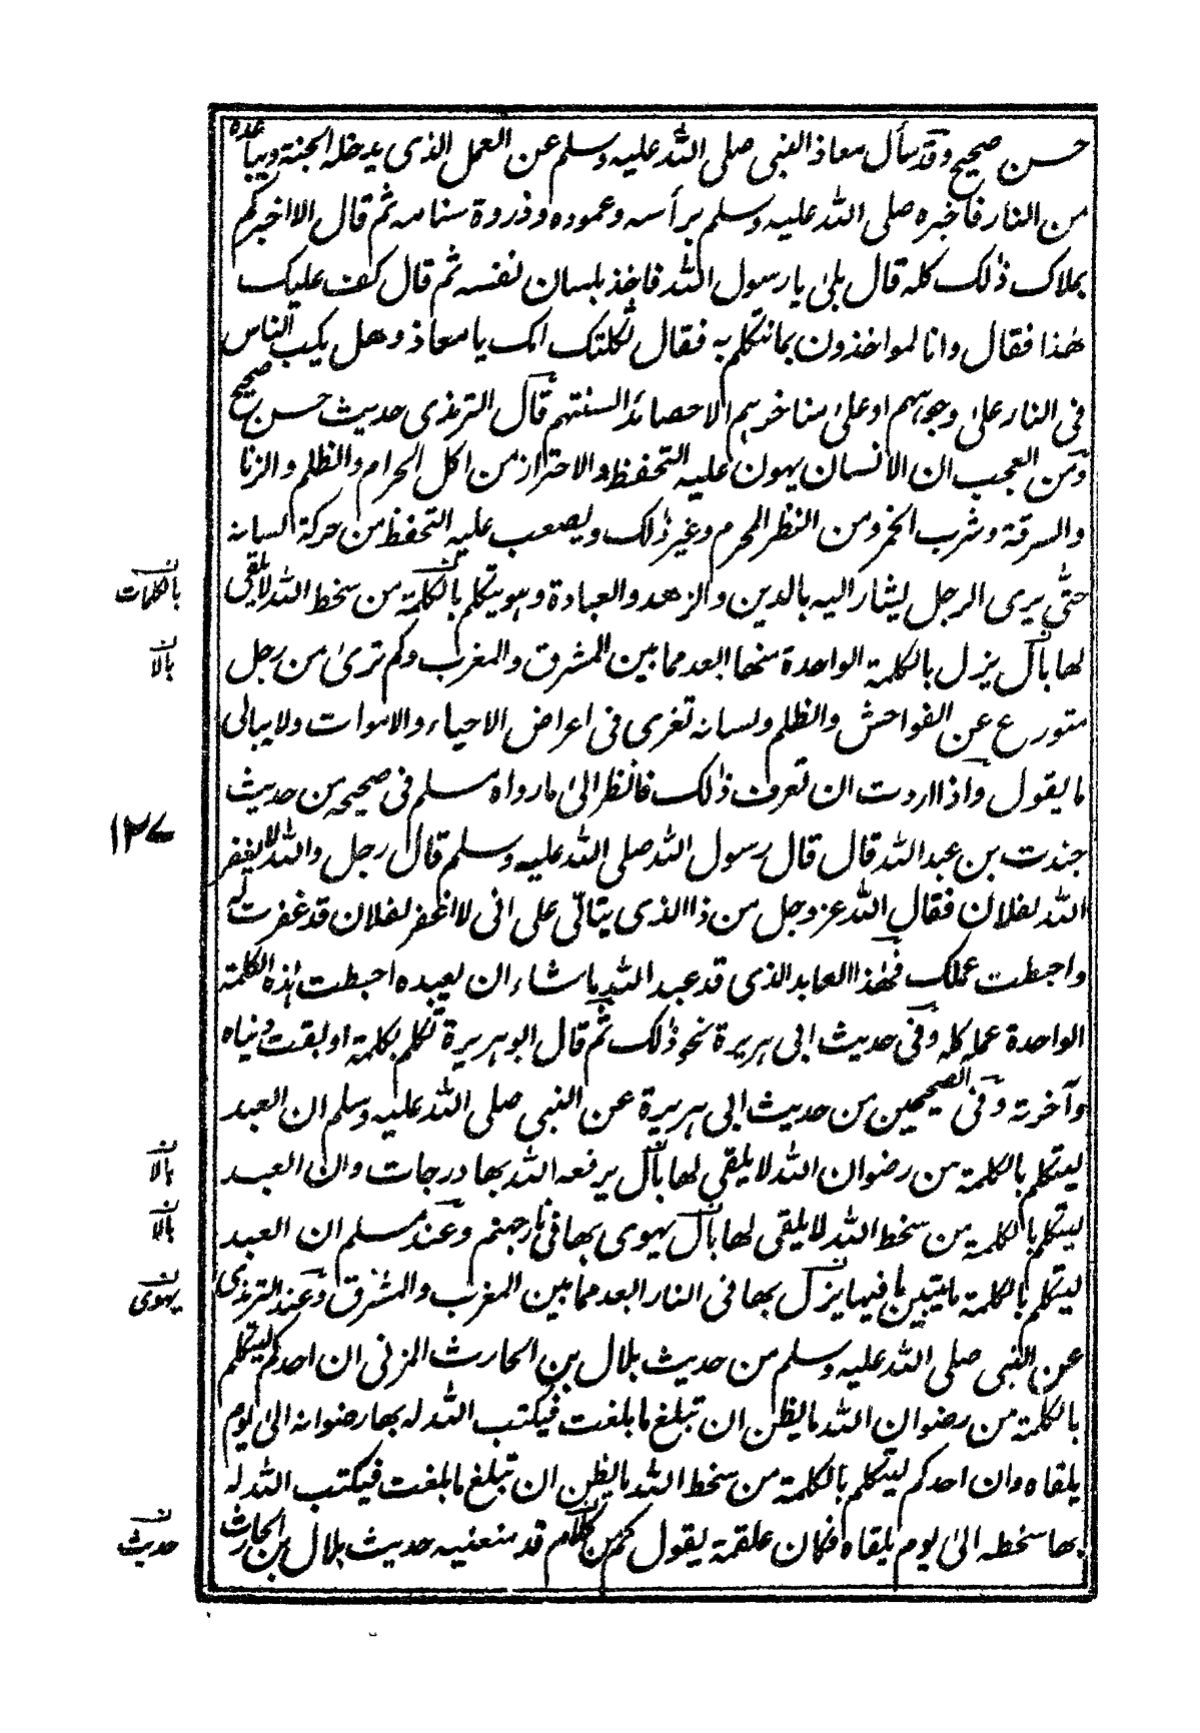 حسن صحيح وقد سأل معاذ النبى صلى الله عليه وسلم عن العمل الذى يدخله الجنة ويباعده
من النار فاخبره صلى الله عليه وسلم برأسه وعموده وذروة سنامه ثم قال الا اخبركم
بملاك ذلك كله قال بلىٰ يا رسول الله فاخذ بلسان نفسه ثم قال كف عليك
هٰذا فقال وانا لمواخذون بما نتكلم به فقال ثكلتك امك يا معاذ وهل يكب الناس
فى النار علىٰ وجوههم او علىٰ مناخرهم الا حصائد السنتهم قال الترمذى حديث حسن صحيح
ومن العجب ان الانسان يهون عليه التحفظ والاحتراز من اكل الحرام والظلم والزنا
والسرقة وشرب الخمر ومن النظر المحرم وغير ذلك ويصعب عليه التحفظ من حركة لسانه
حتّى يرى الرجل يشار اليه بالدين والزهد والعبادة وهو يتكلم بالكلمة من سخط الله لا يلقى
لها بال ينزل بالكلمة الواحدة منها ابعد مما بين المشرق والمغرب وكم ترىٰ من رجل
متورع عن الفواحش والظلم ولسانه تفرى فى اعراض الاحياء والاموات ولا يبالى
ما يقول واذا اردت ان تعرف ذلك فانظر الىٰ ما رواه مسلم فى صحيحه من حديث
جندب بن عبد الله قال قال رسول الله صلى الله عليه وسلم قال رجل والله لا يغفر
الله لفلان فقال الله عز وجل من ذا الذى يتالّى على انى لا اغفر لفلان قد غفرت له
واحبطت عملك فهٰذا العابد الذى قد عبد الله ما شاء ان يعبده احبطت هذه الكلمة
الواحدة عمله كله وفى حديث ابى هريرة نحو ذلك ثم قال ابو هريرة تكلم بكلمة اوبقت دنياه
وآخرته وفى الصحيحين من حديث ابى هريرة عن النبى صلى الله عليه وسلم ان العبد
ليتكلم بالكلمة من رضوان الله لا يلقى لها بال يرفعه الله بها درجات وان العبد
ليتكلم بالكلمة من سخط الله لا يلقى لها بال يهوى بها فى نار جهنم وعند مسلم ان العبد
ليتكلم بالكلمة ما يتبين ما فيها ينزل بها فى النار ابعد مما بين المغرب والمشرق وعند الترمذى
عن النبى صلى الله عليه وسلم من حديث بلال بن الحارث المزنى ان احدكم ليتكلم
بالكلمة من رضوان الله ما يظن ان تبلغ ما بلغت فيكتب الله له بها رضوانه الىٰ يوم
يلقاه وان احدكم ليتكلم بالكلمة من سخط الله ما يظن ان تبلغ ما بلغت فيكتب الله له
بها سخطه الىٰ يوم يلقاه فكان علقمة يقول كم من كلام قد منعنيه حديث بلال بن الحارث
بالكلمات
بالا
١٢٧
بالا
بالا
يهوى
حديث